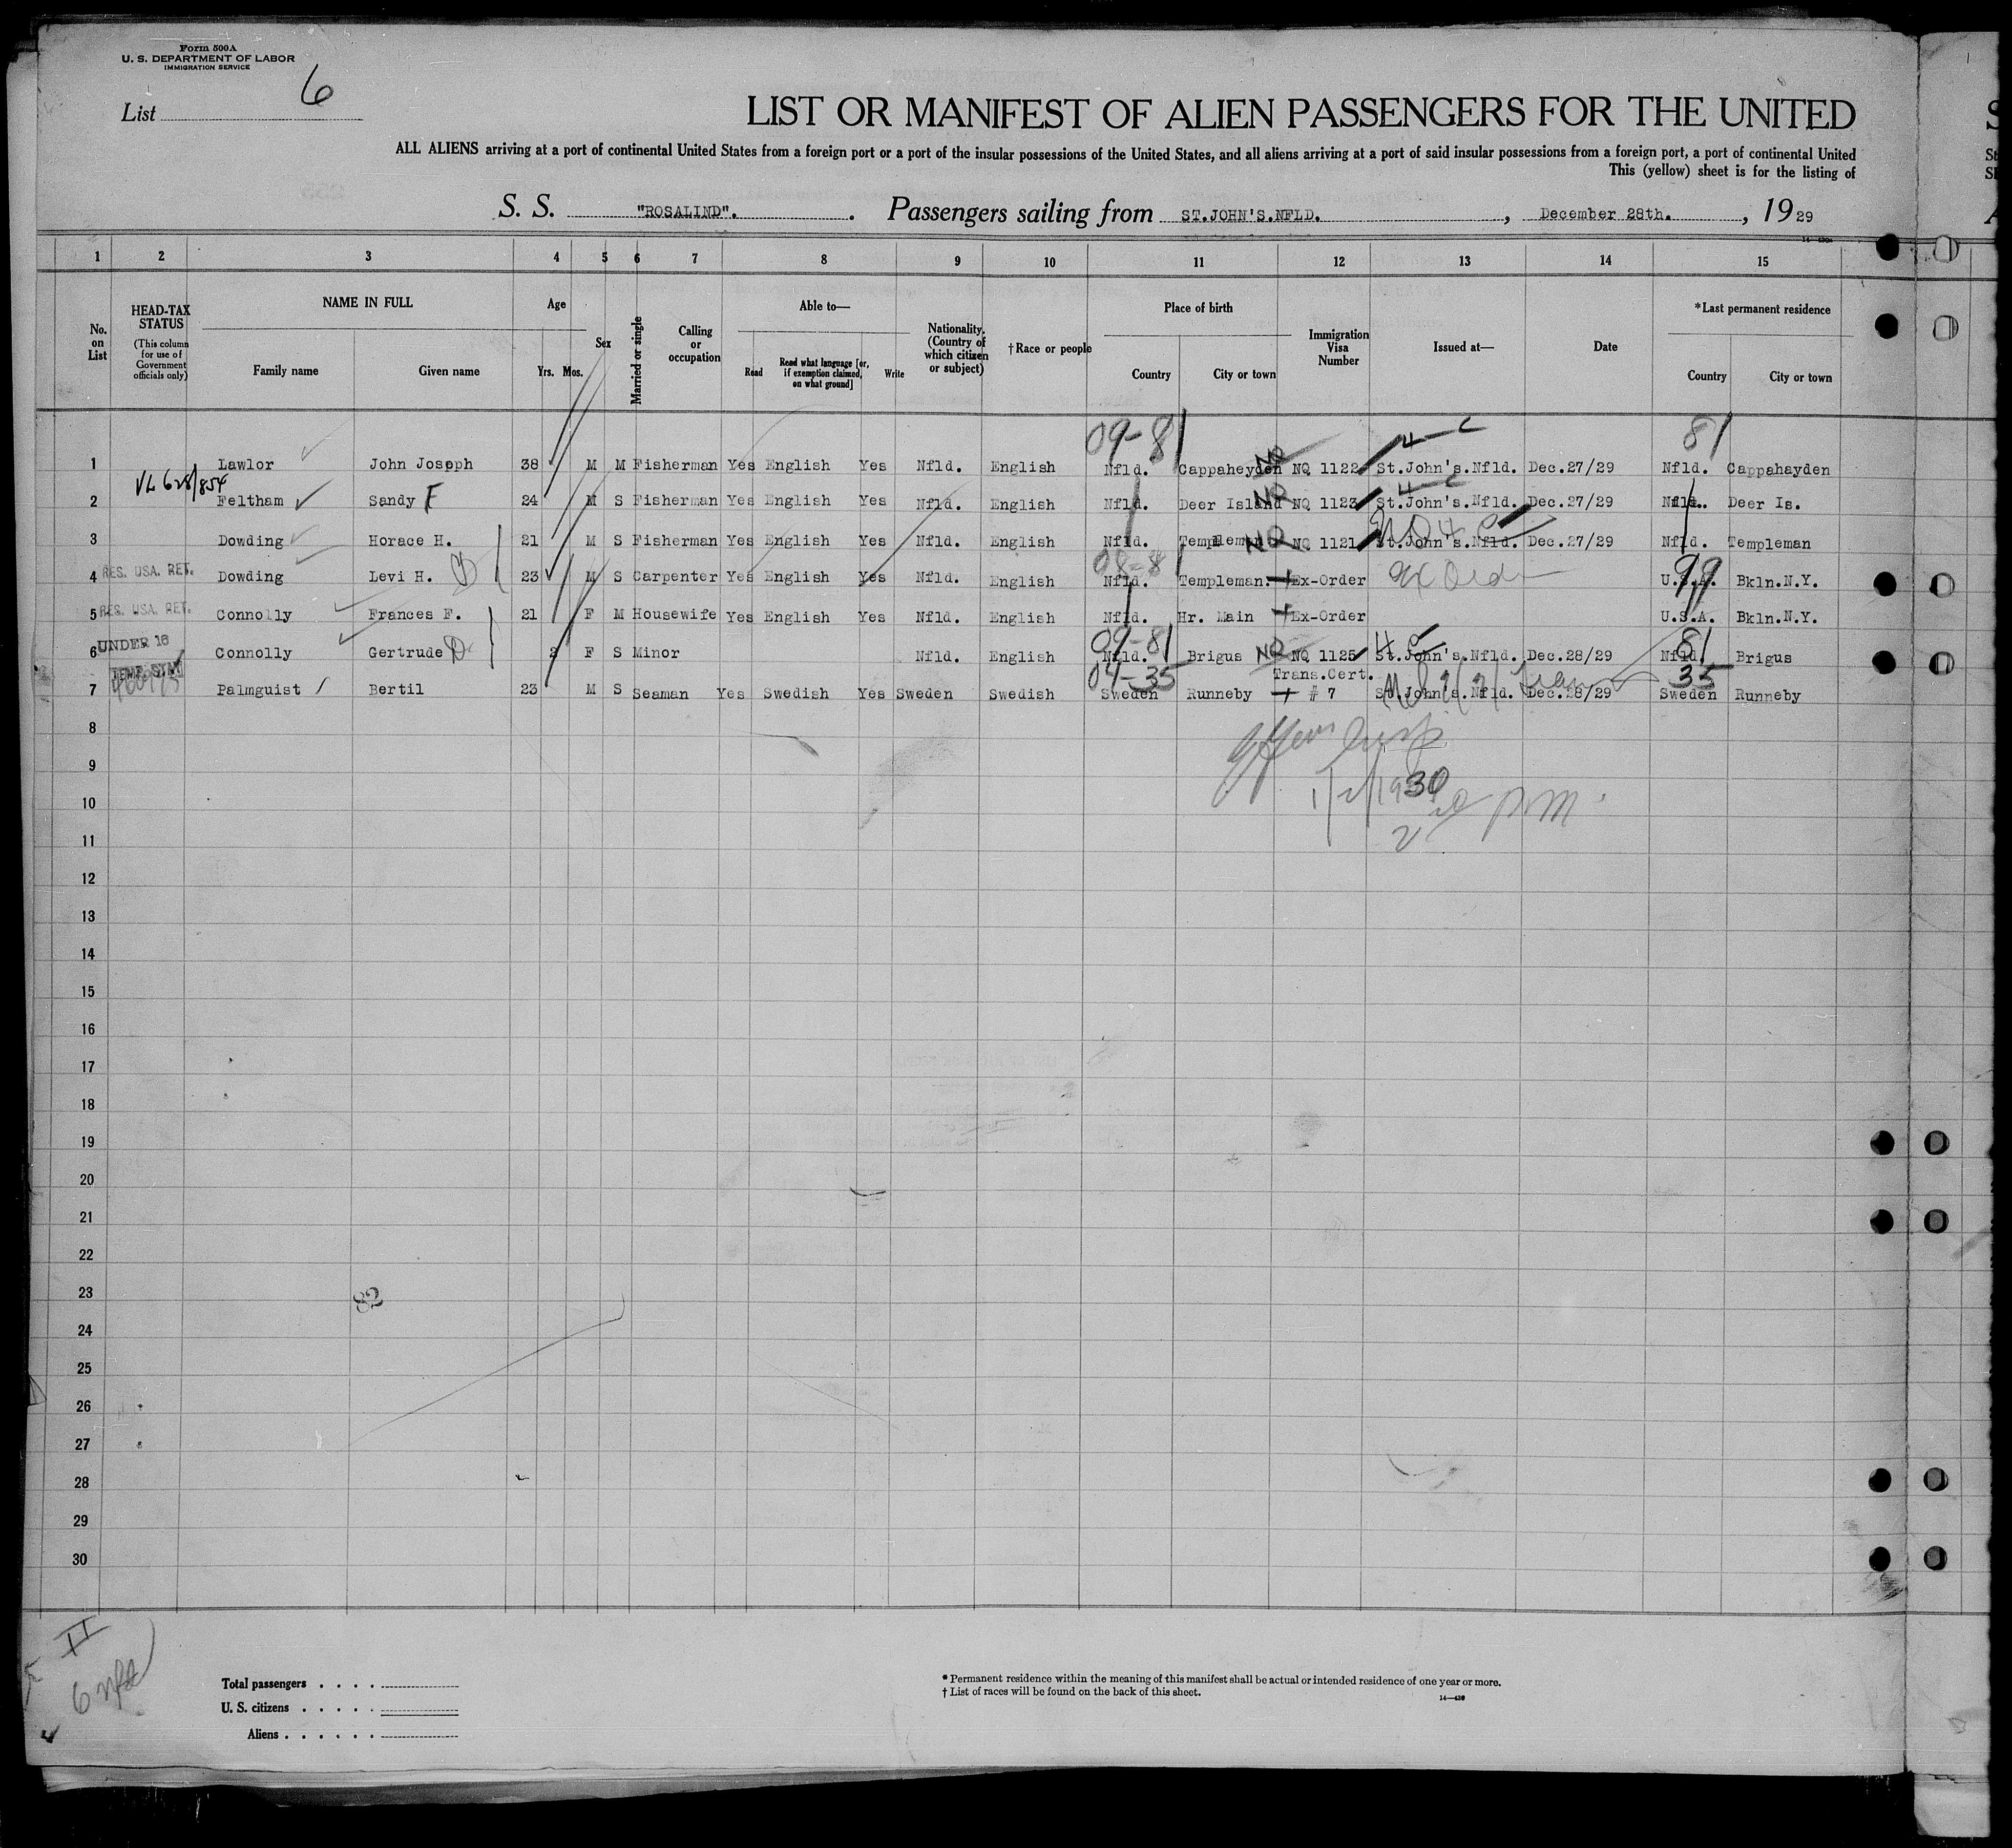 Form 500A
U. S. DEPARTMENT OF LABOR
IMMIGRATION SERVICE
List 6
LIST OR MANIFEST OF ALIEN PASSENGERS FOR THE UNITED
ALL ALIENS arriving at a port of continental United States from a foreign port or a port of the insular possessions of the United States, and all aliens arriving at a port of said insular possessions from a foreign port, a port of continental United
This (yellow) sheet is for the listing of
S. S. "ROSALIND". Passengers sailing from ST.JOHN'S.NFLD. , December 28th. , 1929
1 2 3 4 5 6 7 8 9 10 11 12 13 14 15
No. on List
HEAD-TAX STATUS
(This column for use of Government officials only)
NAME IN FULL
Family name Given name
Age
Yrs. Mos.
Sex
Married or single
Calling or occupation
Able to—
Read Read what language [or, if exemption claimed, on what ground] Write
Nationality. (Country of which citizen or subject)
†Race or people
Place of birth
Country City or town
Immigration Visa Number
Issued at—
Date
*Last permanent residence
Country City or town
09-81 81
1 Lawlor John Joseph 38 M M Fisherman Yes English Yes Nfld. English Nfld. Cappaheyden NQ NQ 1122 St.John's.Nfld. Dec.27/29 Nfld. Cappahayden
VL 628/854
2 Feltham Sandy F 24 M S Fisherman Yes English Yes Nfld. English Nfld. Deer Island NQ NQ 1123 St.John's.Nfld. Dec.27/29 Nfld. Deer Is.
3 Dowding Horace H. 21 M S Fisherman Yes English Yes Nfld. English Nfld. Templeman NQ NQ 1121 St.John's.Nfld. Dec.27/29 Nfld. Templeman
08-81
4 RES. USA. RET. Dowding Levi H. D 23 M S Carpenter Yes English Yes Nfld. English Nfld. Templeman. Ex-Order Ex Order U.S.A. 99 Bkln.N.Y.
5 RES. USA. RET. Connolly Frances F. 21 F M Housewife Yes English Yes Nfld. English Nfld. Hr. Main Ex-Order U.S.A. Bkln.N.Y.
UNDER 16 09-81 81
6 Connolly Gertrude D 2 F S Minor Nfld. English Nfld. Brigus NQ NQ 1125 St.John's.Nfld. Dec.28/29 Nfld. Brigus
TEMP. STAY 04-35 Trans.Cert. 35
7 Palmguist Bertil 23 M S Seaman Yes Swedish Yes Sweden Swedish Sweden Runneby # 7 St.John's.Nfld. Dec.28/29 Sweden Runneby
8
9
1/2/1930
10
PM
11
12
13
14
15
16
17
18
19
20
21
22
23
82
24
25
26
27
28
29
30
II
6 nfld
Total passengers
U. S. citizens
Aliens
* Permanent residence within the meaning of this manifest shall be actual or intended residence of one year or more.
† List of races will be found on the back of this sheet.
14—430